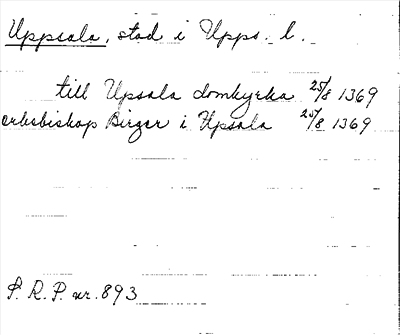 Uppsala, stad i Upps. l.
till Upsala domkyrka 25/8 1369
ärkebiskop Birger i Upsala 25/8 1369
S. R. P. nr. 893